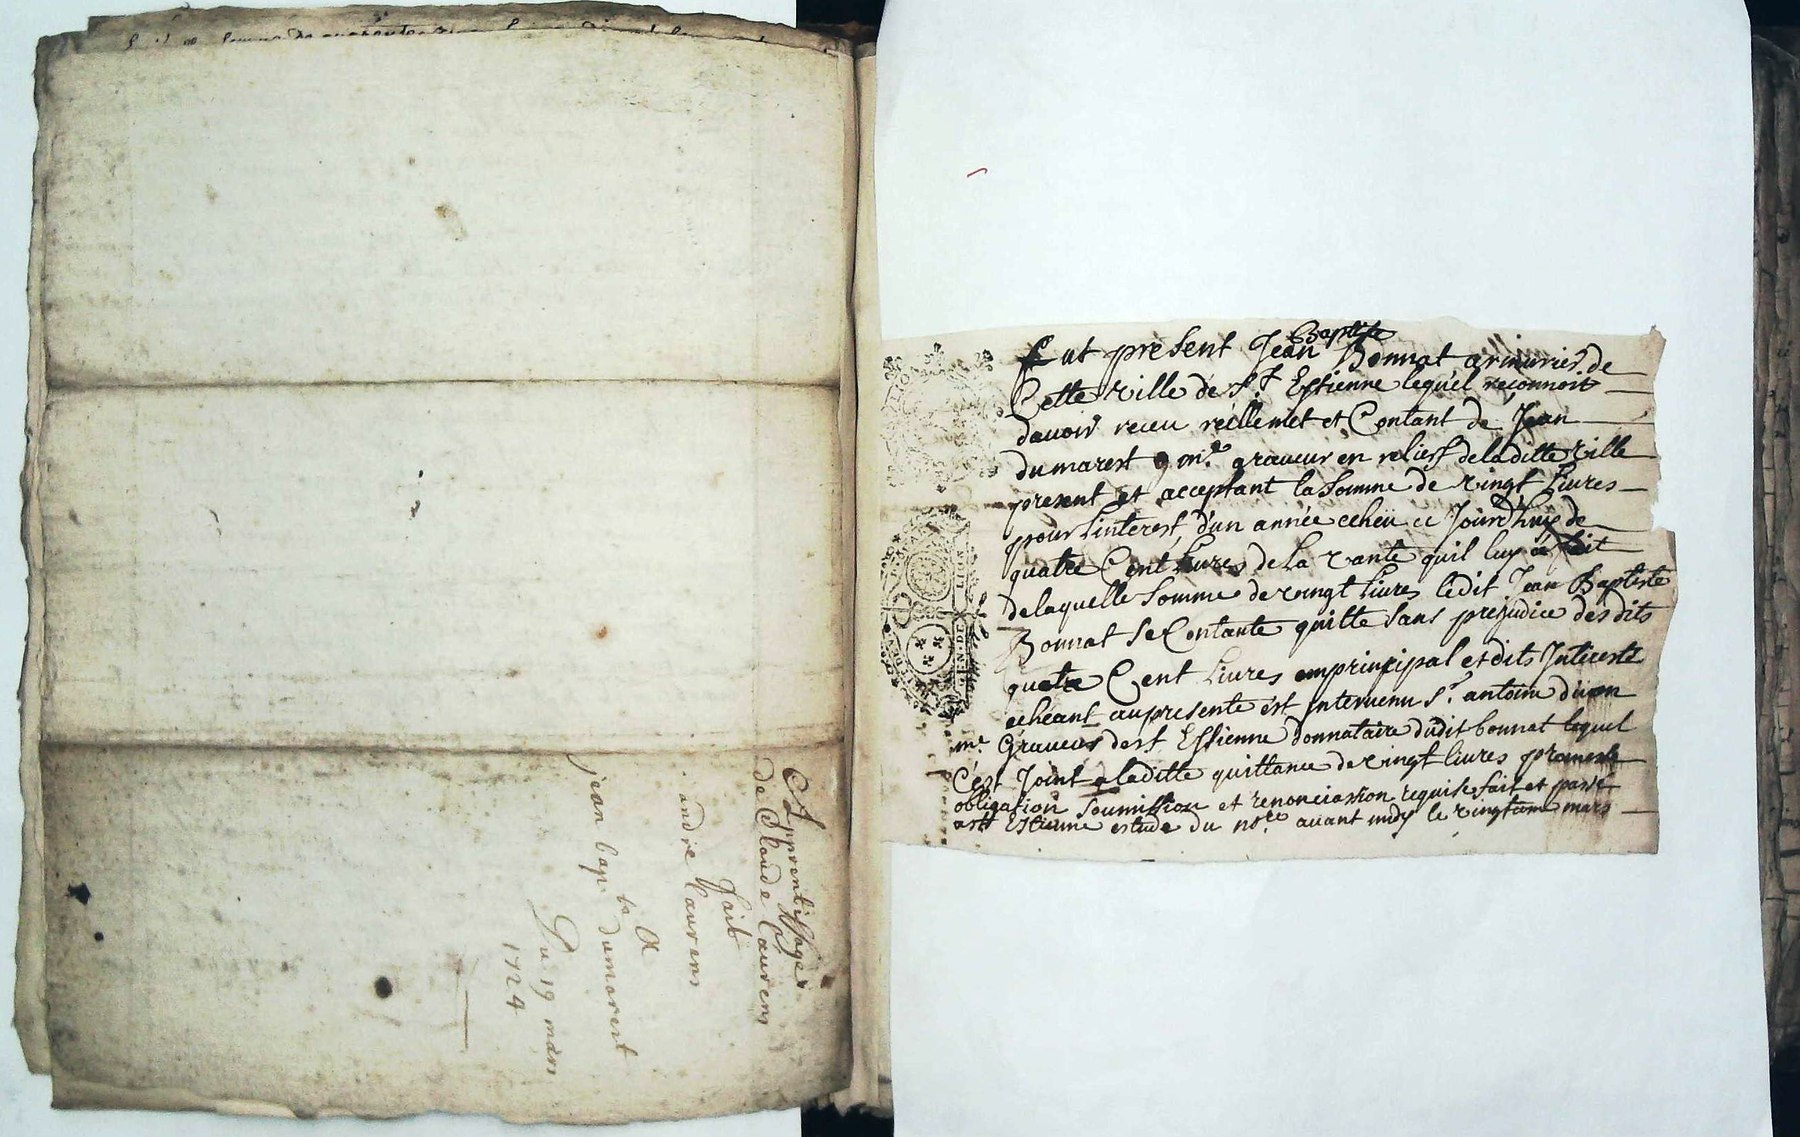 Apprentissage
de Claude Laurens
fait
andre Laurens
A
jean bap.te dumarest
Du 19 mars
1724
fut present Jean Baptiste Bonnat armurier de
Cette ville de St. Estienne lequel reconnoit
davoir receu réellemet et Contant de Jean
dumarest gon.e graveur en relief de ladille ville
present et acceptant la Somme de vingt Livres
pour Linterest d'un année echeu ce Jourd'huy de
quatre Cent Livres de La vante quil luy a fait
delaquelle Somme de vingt Livres ledit Jean Baptiste
Bonnat se Contante quitte Sans prejudice des dits
quatre Cent Livres emprincipal et dits Interests
echeant aupresente est Intervenu Sr. antoine
me. Graveur de st Estienne donnataire dudit bonnat lequel
C'est Joint a ladille quittance de vingt livres
obligation Soumission et renonciassion requise fait et passé
a st Estienne estude du no.re avant midy le mars